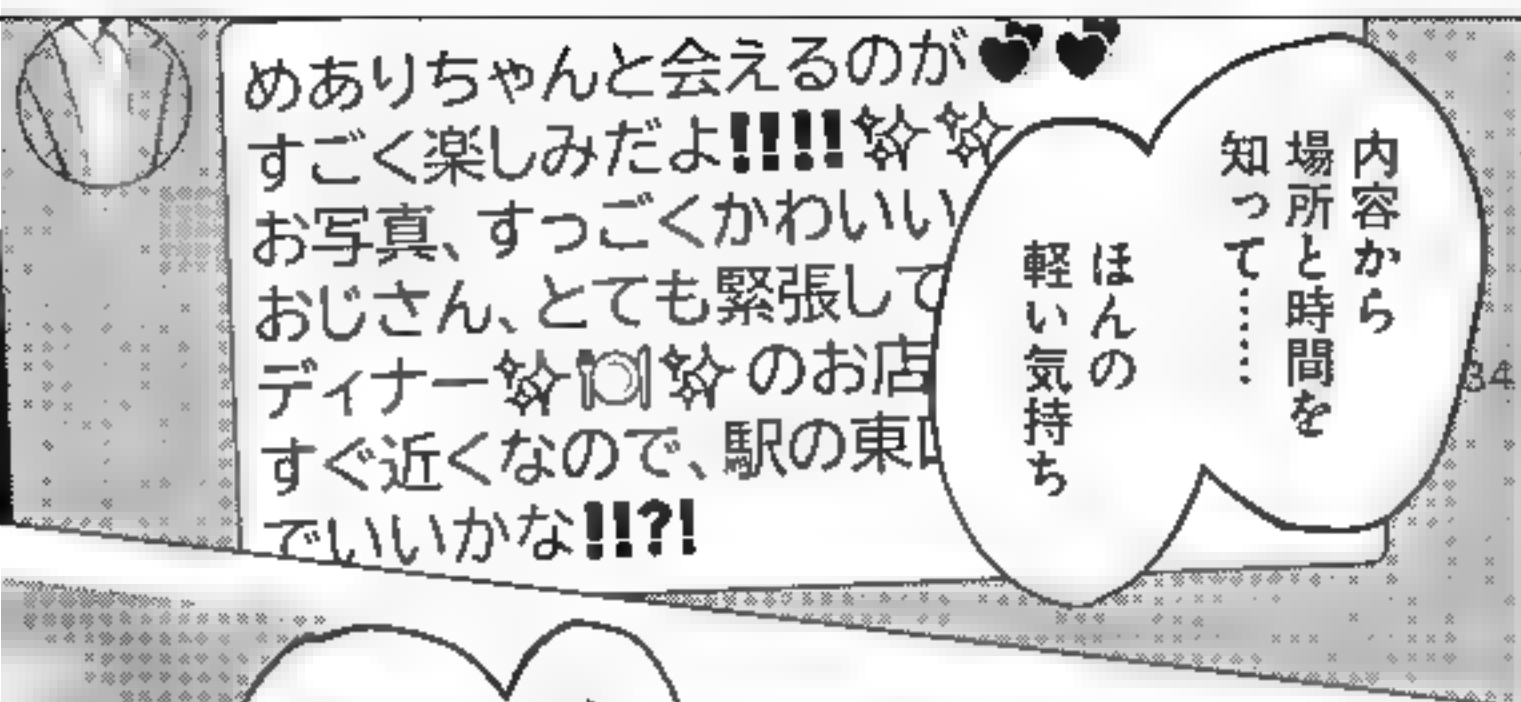 めありちゃんと会えるのが💕💕
すごく楽しみだよ‼‼✨✨
お写真、すっごくかわいい
おじさん、とても緊張して
ディナー✨🍽✨のお店
すぐ近くなので、駅の東口
でいいかな‼⁉
内容から
場所と時間を
知って……
ほんの
軽い気持ち
34